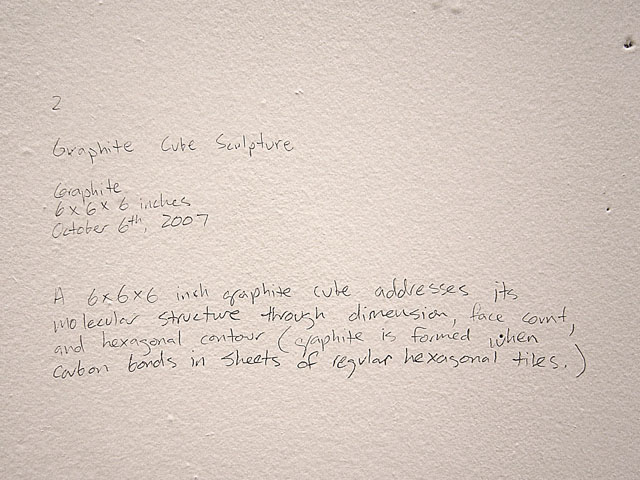 2
Graphite Cube Sculpture
Graphite
6x6x6 inches
October 6th, 2007
A 6x6x6 inch graphite cube addresses its
molecular structure through dimension, face count,
and hexagonal contour (graphite is formed when
carbon bonds in sheets of regular hexagonal tiles.)